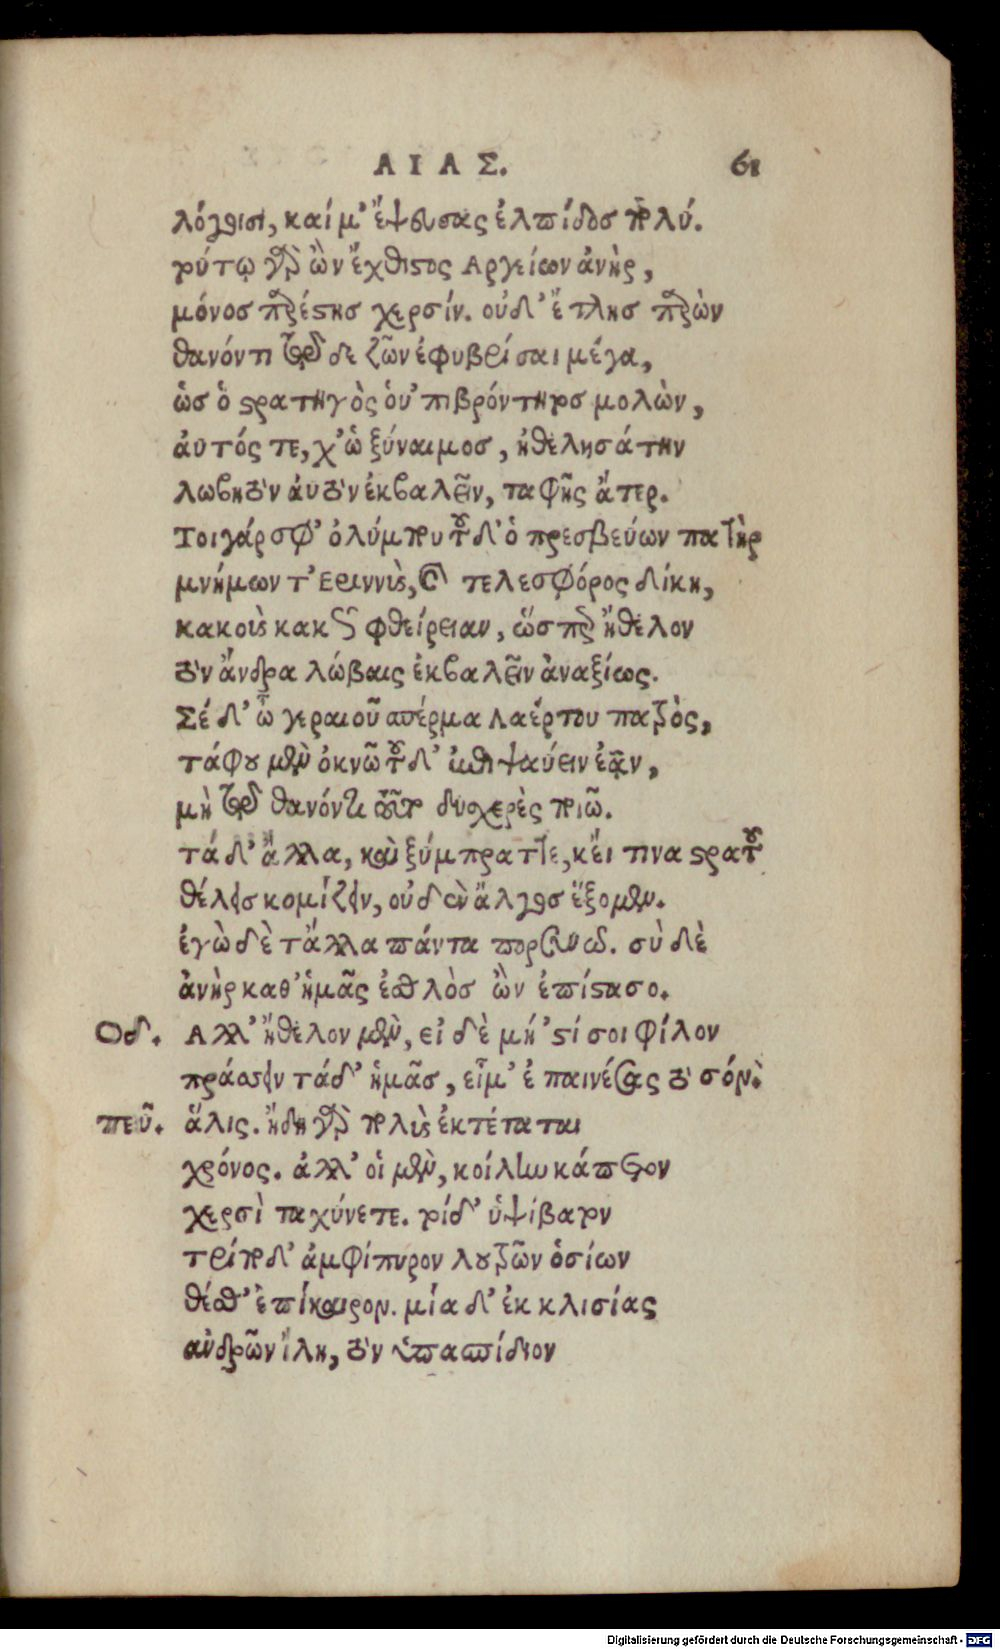 ΑΙΑΣ. 61
λόγοισι, καί μ' ἔψευσας ἐλπίδοσ πολύ.
ρύτῳ γὰρ ὢν ἔχθιστος Αργείων ἀνὴρ,
μόνοσ παρέστησ χερσίν. οὐδ' ἔτλησ παρὼν
θανόντι τῷδε ζῶν ἐφυβρίσαι μέγα,
ὡσ ὁ στρατηγὸς ὁυ' πιβρόντητοσ μολὼν,
ἀυτός τε, χ' ὡ ξύναιμοσ, ἠθελησάτην
λωβητὸν ἀυτὸν ἐκβαλεῖν, ταφῆς ἄτερ.
Τοιγάρ σφ' ὀλύμπου τοῦ δ' ὁ πρεσβεύων πατὴρ
μνήμων τ' Εριννὺς, καὶ τελεσφόρος δίκη,
κακοὺς κακῶς φθείρειαν, ὥσπερ ἤθελον
τὸν ἄνδρα λώβαις ἐκβαλεῖν ἀναξίως.
Σέ δ' ὦ γεραιοῦ σπέρμα Λαέρτου πατρὸς,
τάφου μὲν ὀκνῶ τοῦ δ' ἐπιψαύειν ἐᾷν,
μὴ τῷ θανόντι τοῦτο δυσχερὲς ποιῶ.
τά δ' ἄλλα, καὶ ξύμπραττε, κἔι τινα στρατοῦ
θέλεισ κομίζειν, οὐδὲν ἄλγοσ ἕξομεν.
ἐγὼ δὲ τἄλλα πάντα πορσυνῶ. σὺ δὲ
ἀνὴρ καθ' ἡμᾶς ἐσθλὸσ ὢν ἐπίστασο.
Οδ. Αλλ' ἤθελον μὲν, εἰ δὲ μή 'στί σοι φίλον
πράσσειν τάδ' ἡμᾶσ, εἶμ' ἐπαινέσας τὸ σόν.
τεῦ. ἅλις. ἤδη γὰρ πολὺς ἐκτέταται
χρόνος. ἀλλ' οἱ μὲν, κοίλην κάπετον
χερσὶ ταχύνετε. τοί δ' ὑψίβατον
τρίποδ' ἀμφίπυρον λουτρῶν ὁσίων
θέσθ' ἐπίκαιρον. μία δ' ἐκ κλισίας
ἀνδρῶν ἴλη, τὸν ὑπασπίδιον
Digitalisierung gefördert durch die Deutsche Forschungsgemeinschaft - DFG